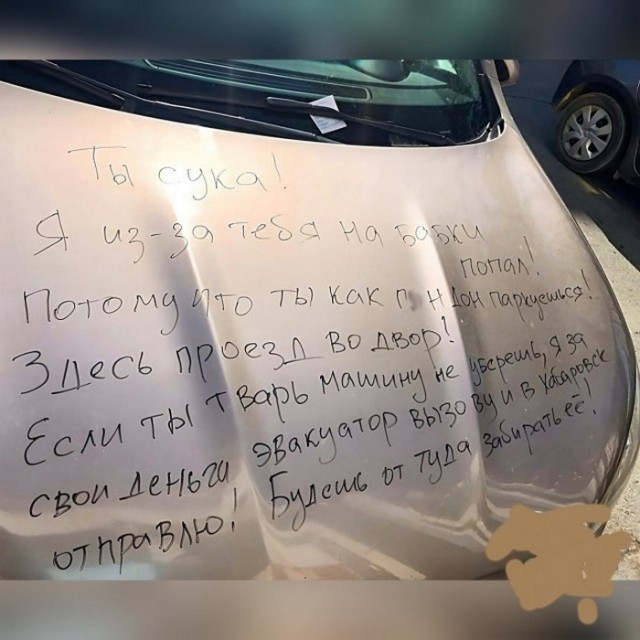 Ты сука!
Я из-за тебя на бабки
попал!
Потому что ты как п н дон паркуешься!
Здесь проезд во двор!
Если ты тварь машину не уберешь, я за
свои деньга эвакуатор вызову и в Хабаровск
отправлю! Будешь от туда забирать её!